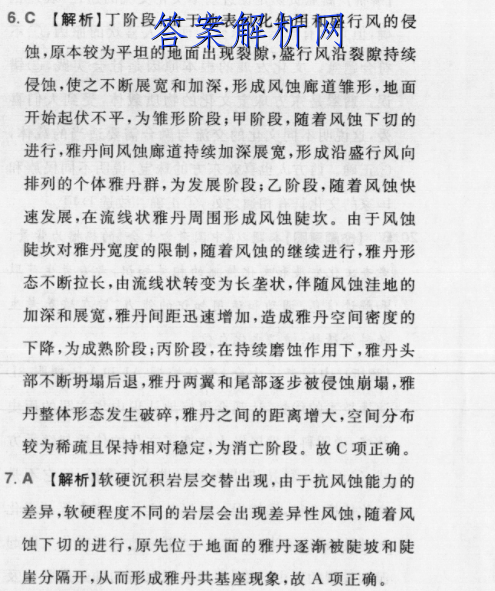 答案解析网
6. C 【解析】丁阶段,由于地表风化作用和盛行风的侵
蚀,原本较为平坦的地面出现裂隙,盛行风沿裂隙持续
侵蚀,使之不断展宽和加深,形成风蚀廊道雏形,地面
开始起伏不平,为雏形阶段;甲阶段,随着风蚀下切的
进行,雅丹间风蚀廊道持续加深展宽,形成沿盛行风向
排列的个体雅丹群,为发展阶段;乙阶段,随着风蚀快
速发展,在流线状雅丹周围形成风蚀陡坎。由于风蚀
陡坎对雅丹宽度的限制,随着风蚀的继续进行,雅丹形
态不断拉长,由流线状转变为长垄状,伴随风蚀洼地的
加深和展宽,雅丹间距迅速增加,造成雅丹空间密度的
下降,为成熟阶段;丙阶段,在持续磨蚀作用下,雅丹头
部不断坍塌后退,雅丹两翼和尾部逐步被侵蚀崩塌,雅
丹整体形态发生破碎,雅丹之间的距离增大,空间分布
较为稀疏且保持相对稳定,为消亡阶段。故 C 项正确。
7. A 【解析】软硬沉积岩层交替出现,由于抗风蚀能力的
差异,软硬程度不同的岩层会出现差异性风蚀,随着风
蚀下切的进行,原先位于地面的雅丹逐渐被陡坡和陡
崖分隔开,从而形成雅丹共基座现象,故 A 项正确。